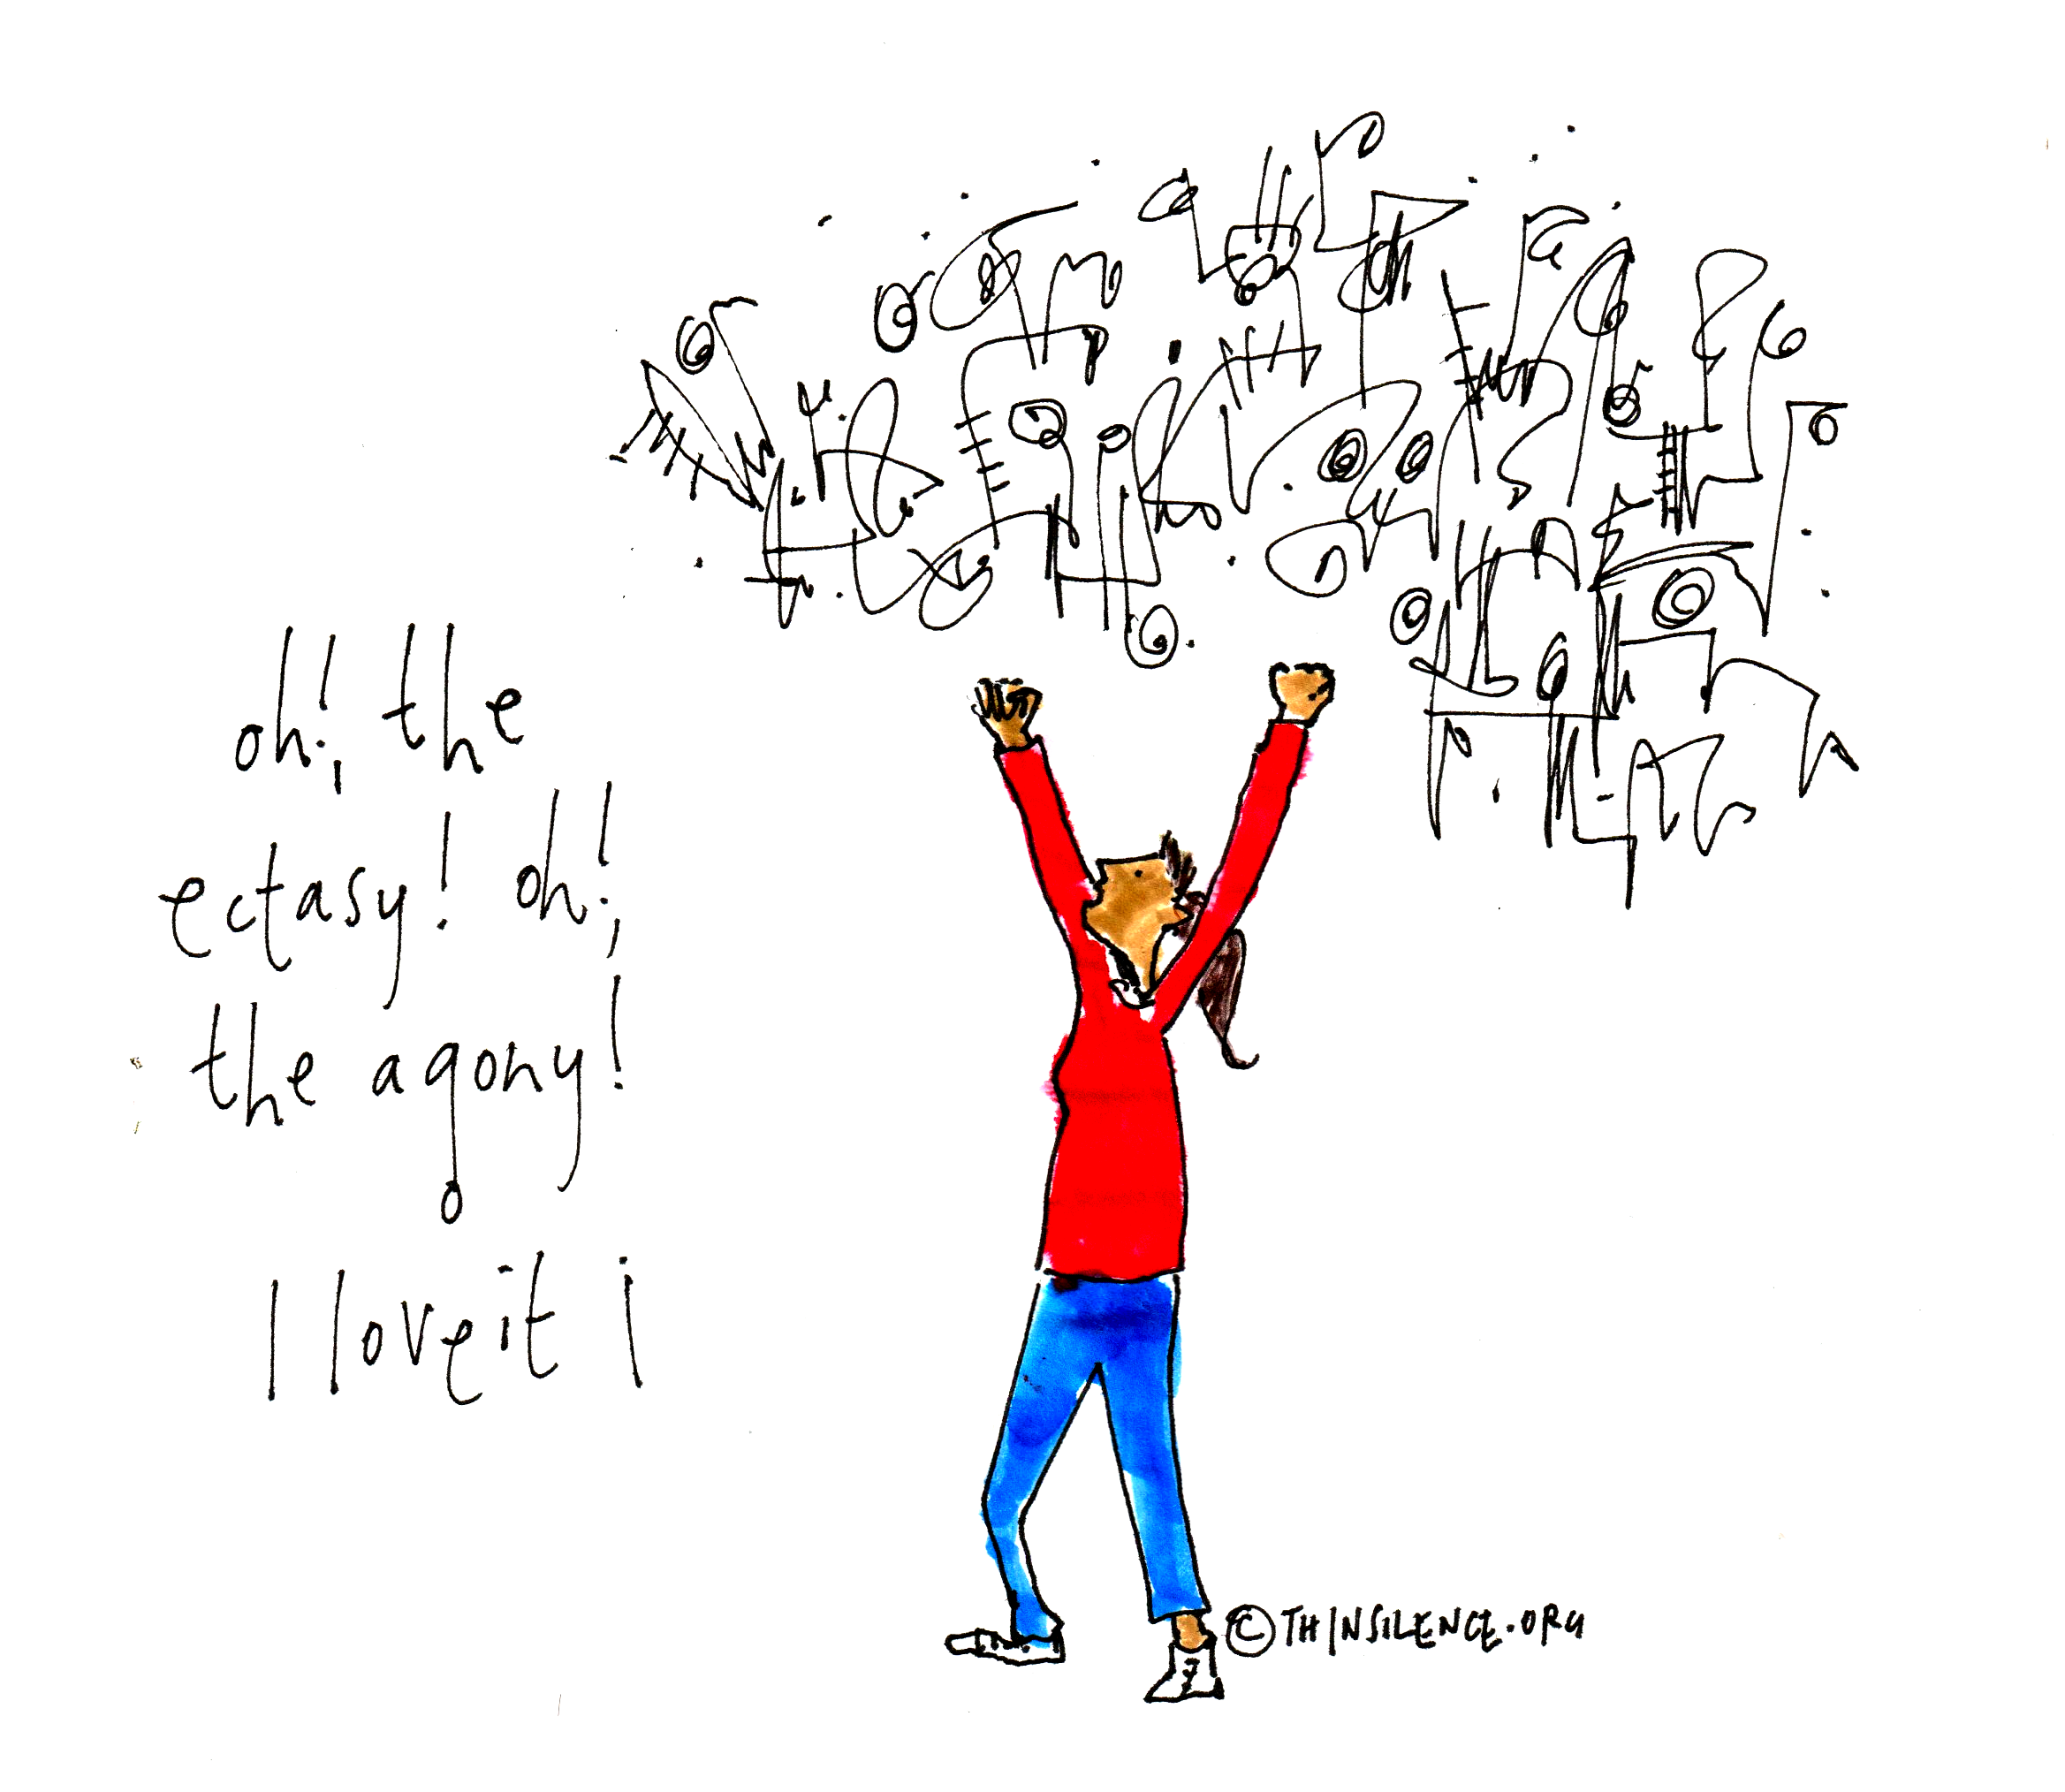 oh!, the
ectasy! oh!,
the agony!
I love it i
© THINSILENCE.ORG